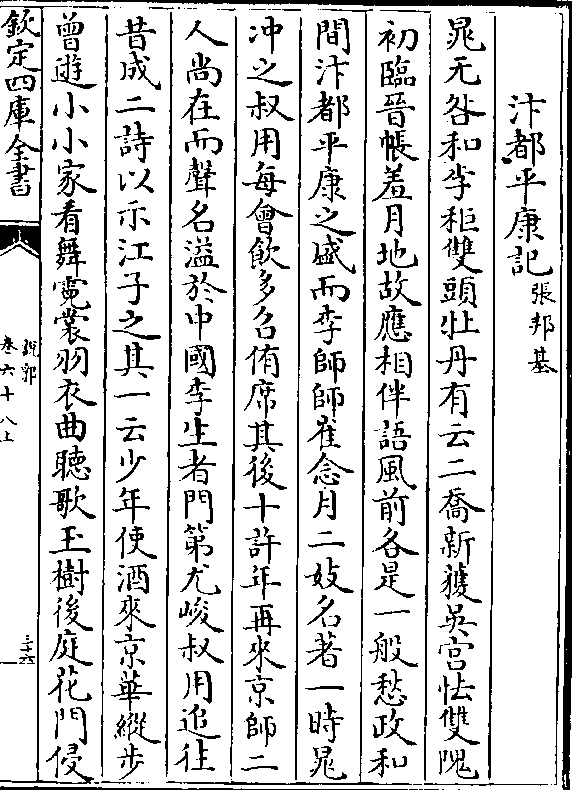 汴都平康記 張邦基
晁无咎和李秬雙頭牡丹有云二喬新獲吳宫怯雙隗
初臨晉帳羞月地故應相伴語風前各是一般愁政和
間汴都平康之盛而李師師崔念月二妓名著一時晁
冲之叔用每會飲多名侑席其後十許年再來京師二
人尚在而聲名溢於中國李生者門第尤峻叔用追往
昔成二詩以示江子之其一云少年使酒來京華縱步
曾遊小小家看舞霓裳羽衣曲聽歌玉樹後庭花門侵
欽定四庫全書
說郛
卷六十八上
三十六